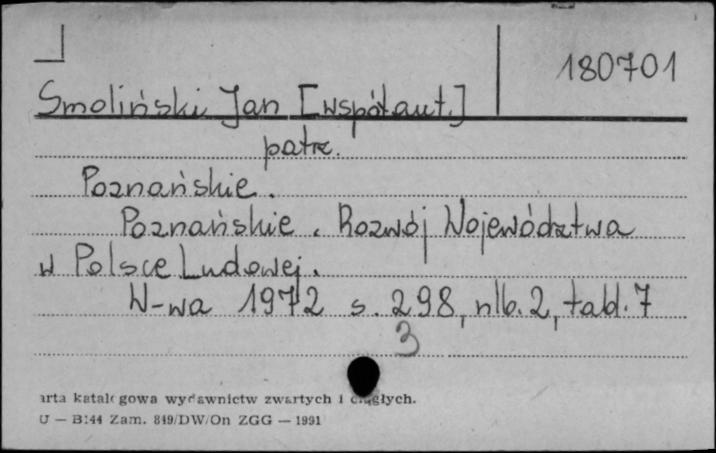 180701
Smoliński Jan [współaut.]
patrz.
Poznańskie.
Poznańskie. Rozwój Województwa
w Polsce Ludowej.
W-wa 1972 s. 298, nlb. 2, tabl. 7
3
arta katalogowa wydawnictw zwartych i ciągłych.
U — B:44 Zam. 819/DW/On ZGG — 1991